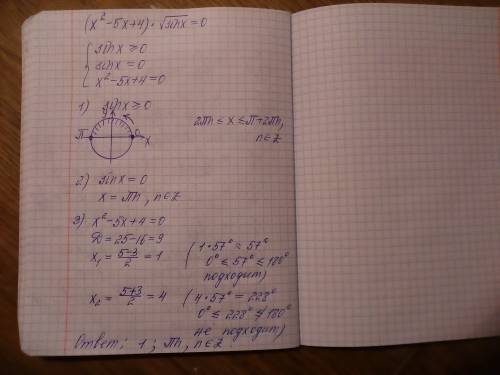 (x² - 5x + 4) · √sinx = 0
{ sinx ≥ 0
sinx = 0
x² - 5x + 4 = 0
1) sinx ≥ 0
π 0 x
2πn ≤ x ≤ π + 2πn,
n ∈ Z
2) sinx = 0
x = πn, n ∈ Z
3) x² - 5x + 4 = 0
D = 25 - 16 = 9
x₁ = (5-3)/2 = 1 (1·57° = 57°
0° ≤ 57° ≤ 180°
подходит)
x₂ = (5+3)/2 = 4 (4·57° = 228°
0° ≤ 228° ≰ 180°
не подходит)
Ответ: 1; πn, n ∈ Z.